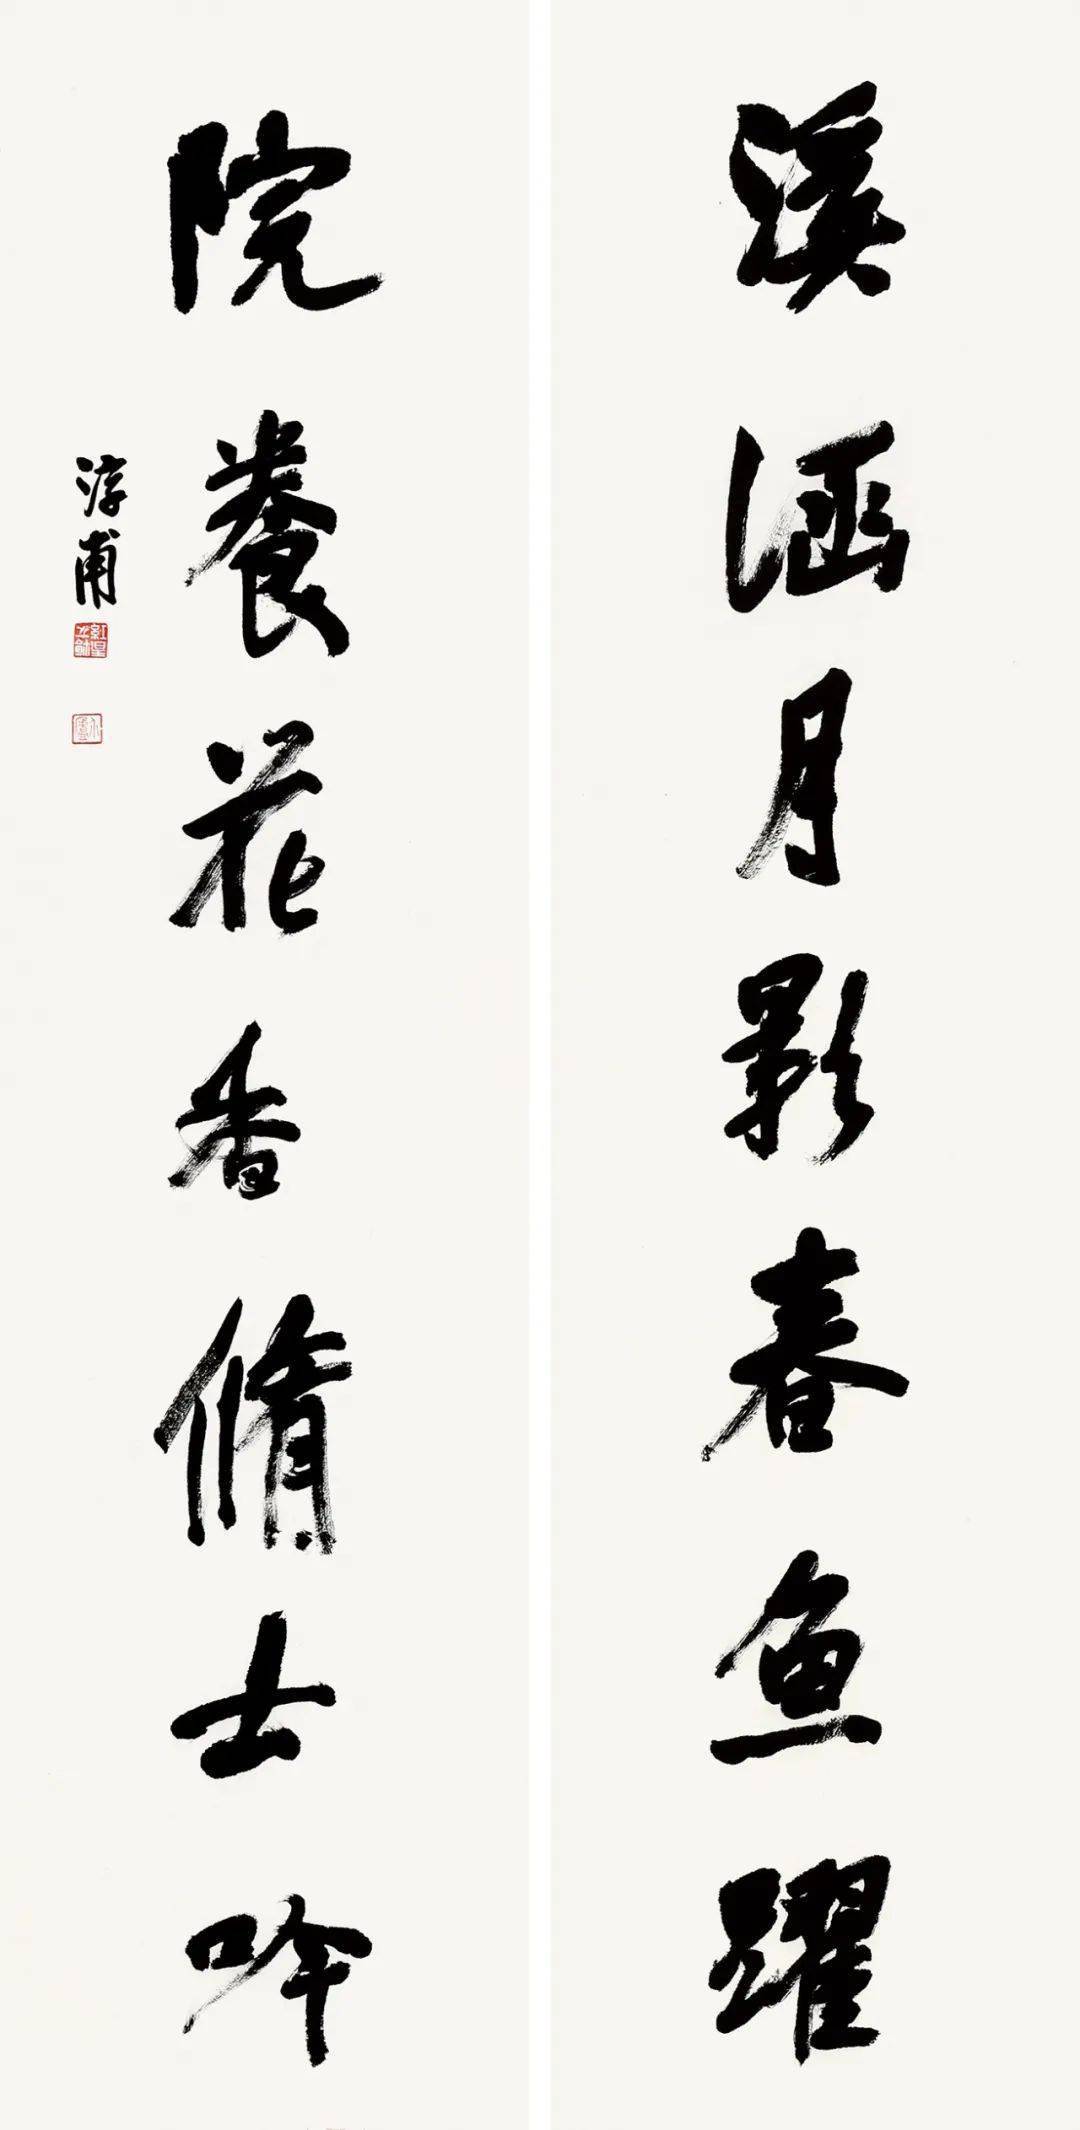 溪涵月影春鱼躍
院養花香脩士吟
浮甫